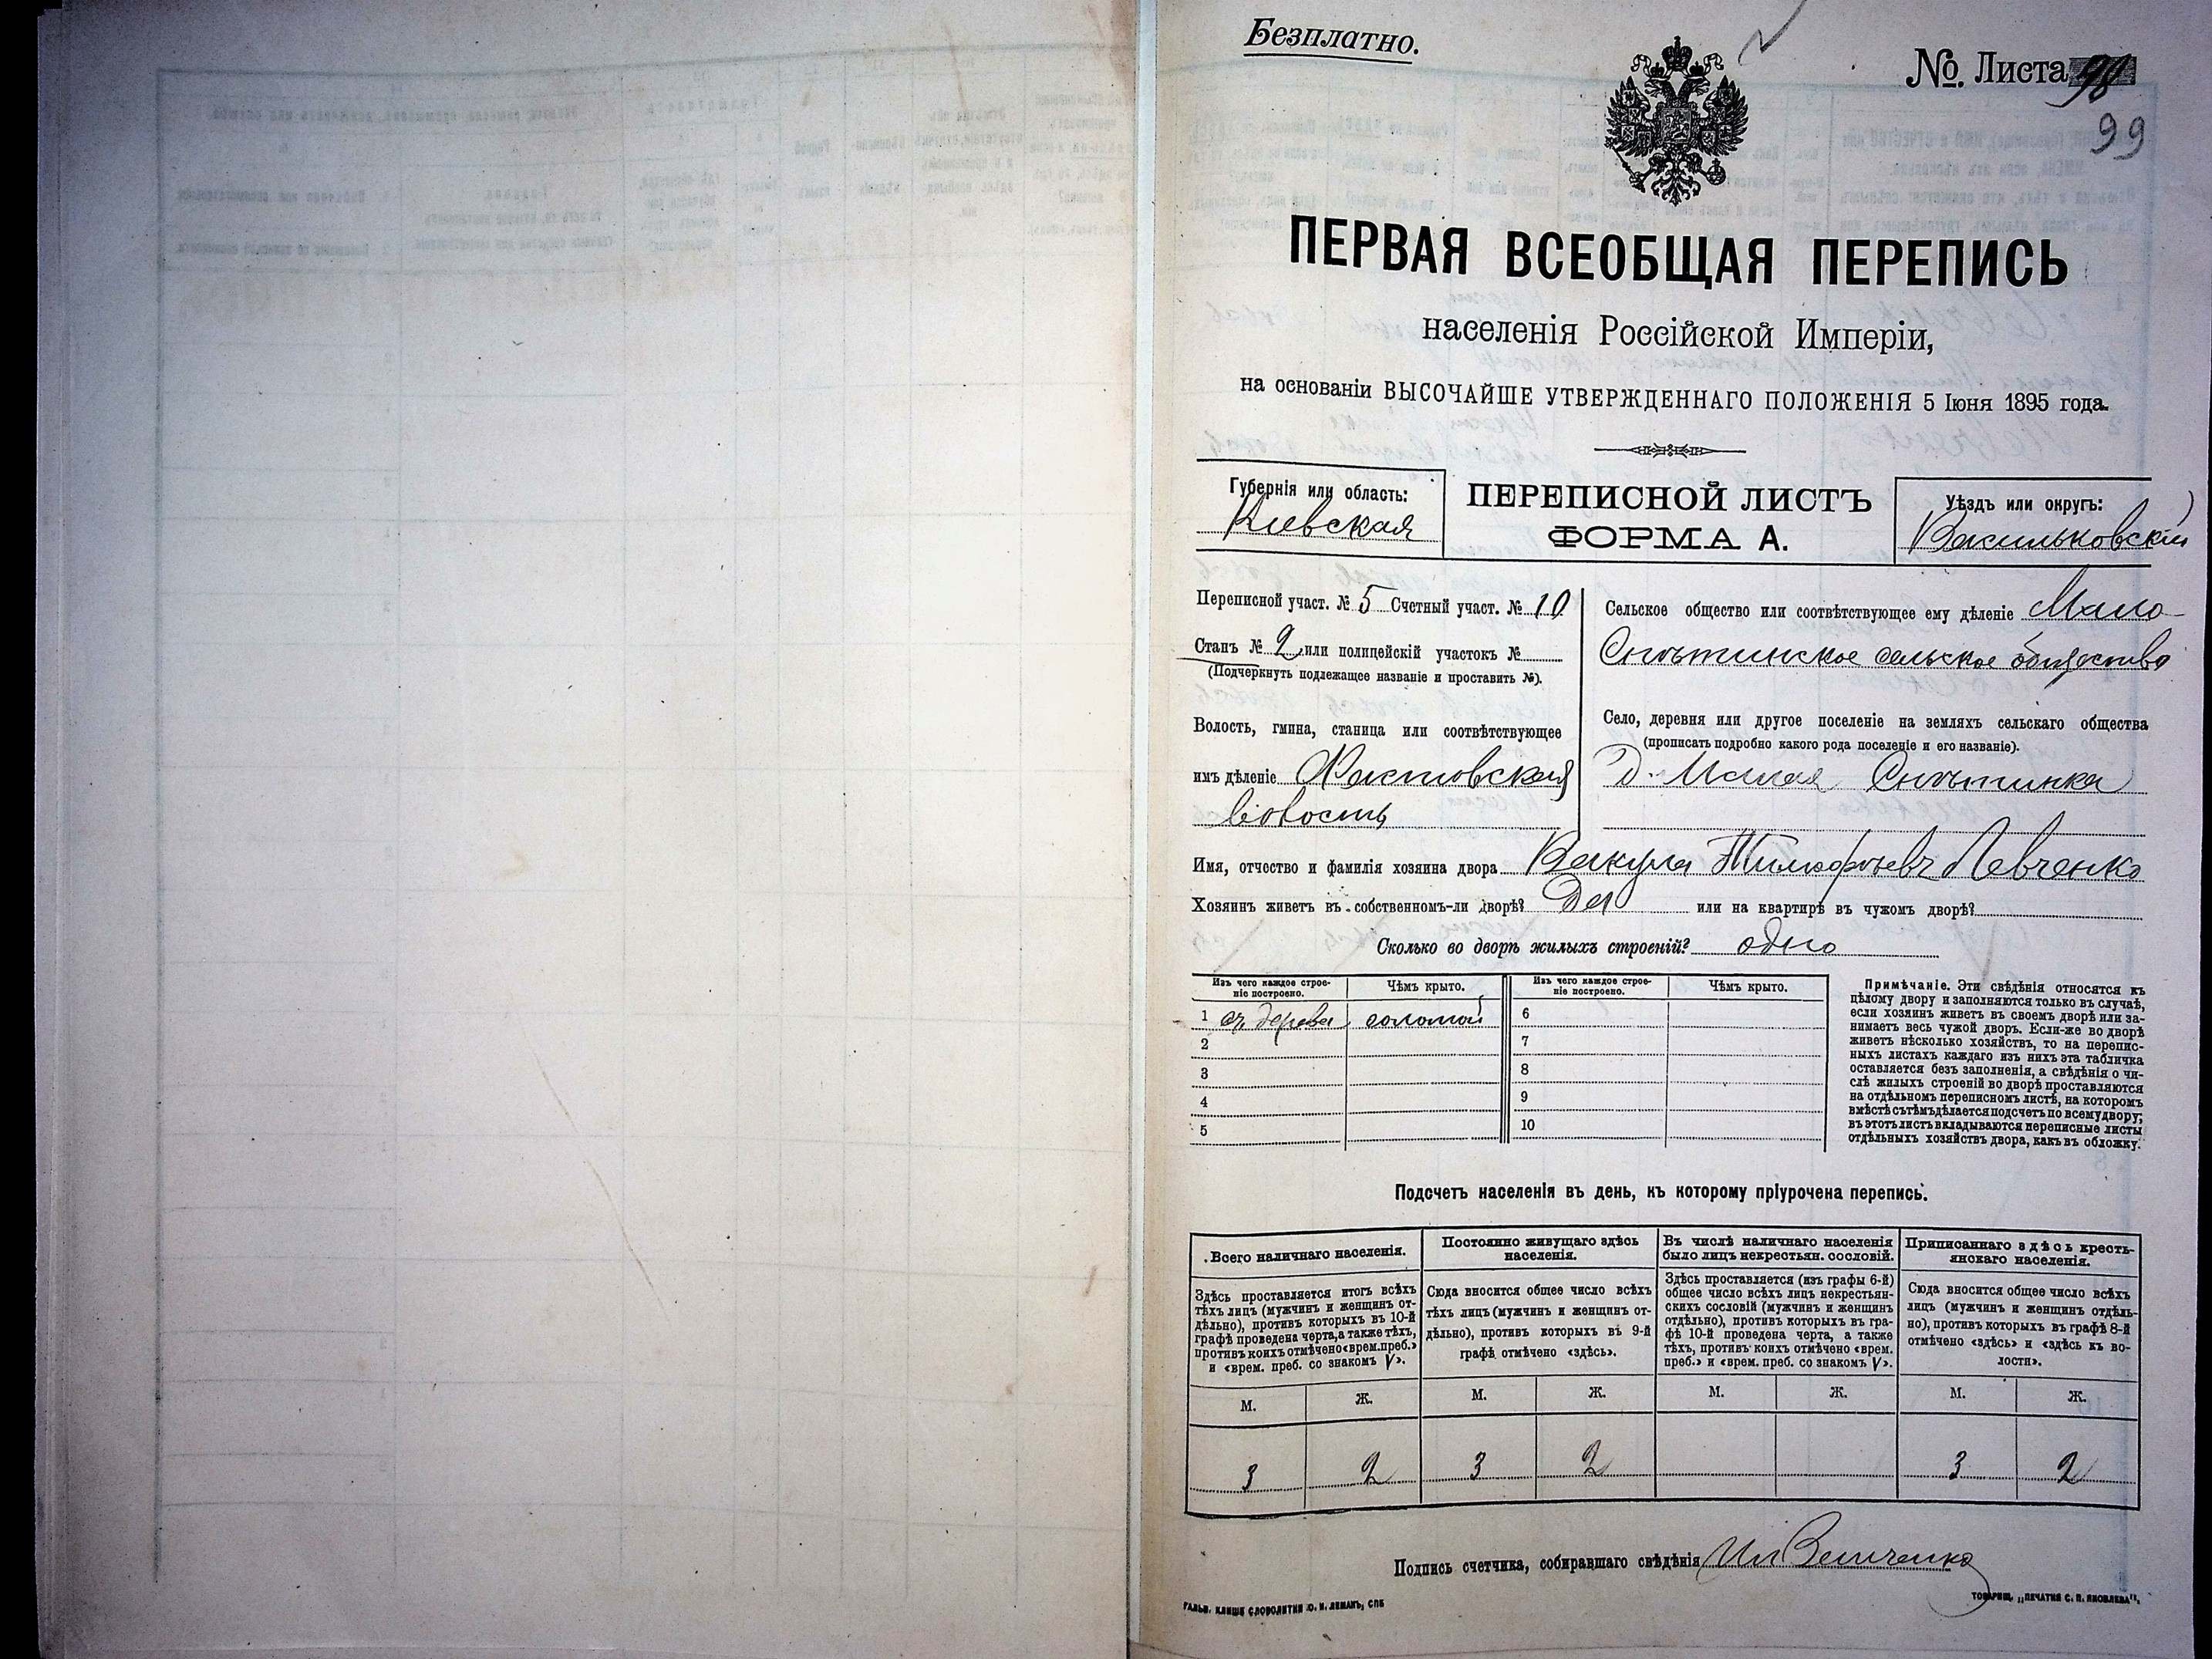 Безплатно.
№. Листа 98
99
ПЕРВАЯ ВСЕОБЩАЯ ПЕРЕПИСЬ
населенія Россійской Имперіи,
на основаніи ВЫСОЧАЙШЕ УТВЕРЖДЕННАГО ПОЛОЖЕНІЯ 5 Іюня 1895 года.
Губернія или область:
Кіевская
ПЕРЕПИСНОЙ ЛИСТЪ
ФОРМА А.
Уѣздъ или округъ:
Васильковскій
Переписной участ. № 5 Счетный участ. № 10
Станъ № 2 или полицейскій участокъ №
(Подчеркнуть подлежащее названіе и проставить №).
Волость, гмина, станица или соотвѣтствующее
имъ дѣленіе Фастовская
волость
Сельское общество или соотвѣтствующее ему дѣленіе Мало-
Снѣтинское сельское общество
Село, деревня или другое поселеніе на земляхъ сельскаго общества
(прописать подробно какого рода поселеніе и его названіе).
Д. Малая Снѣтинка
Имя, отчество и фамилія хозяина двора Вакула Тимофѣевъ Левченко
Хозяинъ живетъ въ собственномъ-ли дворѣ? Да или на квартирѣ въ чужомъ дворѣ?
Сколько во дворѣ жилыхъ строеній? одно
Изъ чего каждое строе-
ніе построено.
Чѣмъ крыто.
Изъ чего каждое строе-
ніе построено.
Чѣмъ крыто.
1 дерева соломой 6
2 7
3 8
4 9
5 10
Примѣчаніе. Эти свѣдѣнія относятся къ
цѣлому двору и заполняются только въ случаѣ,
если хозяинъ живетъ въ своемъ дворѣ или за-
нимаетъ весь чужой дворъ. Если-же во дворѣ
живетъ нѣсколько хозяйствъ, то на перепис-
ныхъ листахъ каждаго изъ нихъ эта табличка
оставляется безъ заполненія, а свѣдѣнія о чи-
слѣ жилыхъ строеній во дворѣ проставляются
на отдѣльномъ переписномъ листѣ, на которомъ
вмѣстѣ съ тѣмъ дѣлается подсчетъ по всему двору;
въ этотъ листъ вкладываются переписные листы
отдѣльныхъ хозяйствъ двора, какъ въ обложку.
Подсчетъ населенія въ день, къ которому пріурочена перепись.
Всего наличнаго населенія.
Здѣсь проставляется итогъ всѣхъ
тѣхъ лицъ (мужчинъ и женщинъ от-
дѣльно), противъ которыхъ въ 10-й
графѣ проведена черта, а также тѣхъ,
противъ коихъ отмѣчено «врем. преб.»
и «врем. преб. со знакомъ V».
Постоянно живущаго здѣсь
населенія.
Сюда вносится общее число всѣхъ
тѣхъ лицъ (мужчинъ и женщинъ от-
дѣльно), противъ которыхъ въ 9-й
графѣ отмѣчено «здѣсь».
Въ числѣ наличнаго населенія
было лицъ некрестьян. сословій.
Здѣсь проставляется (изъ графы 6-й)
общее число всѣхъ лицъ некрестьян-
скихъ сословій (мужчинъ и женщинъ
отдѣльно), противъ которыхъ въ гра-
фѣ 10-й проведена черта, а также
тѣхъ, противъ коихъ отмѣчено «врем.
преб.» и «врем. преб. со знакомъ V».
Приписаннаго здѣсь кресть-
янскаго населенія.
Сюда вносится общее число всѣхъ
лицъ (мужчинъ и женщинъ отдѣль-
но), противъ которыхъ въ графѣ 8-й
отмѣчено «здѣсь» и «здѣсь къ во-
лости».
М. Ж. М. Ж. М. Ж. М. Ж.
3 2 3 2 3 2
Подпись счетчика, собиравшаго свѣдѣнія
ГАЛЬВ. КЛИШЕ СЛОВОЛИТНИ О. И. ЛЕМАНЪ, СПБ
ТОВАРИЩ. „ПЕЧАТНЯ С. П. ЯКОВЛЕВА".